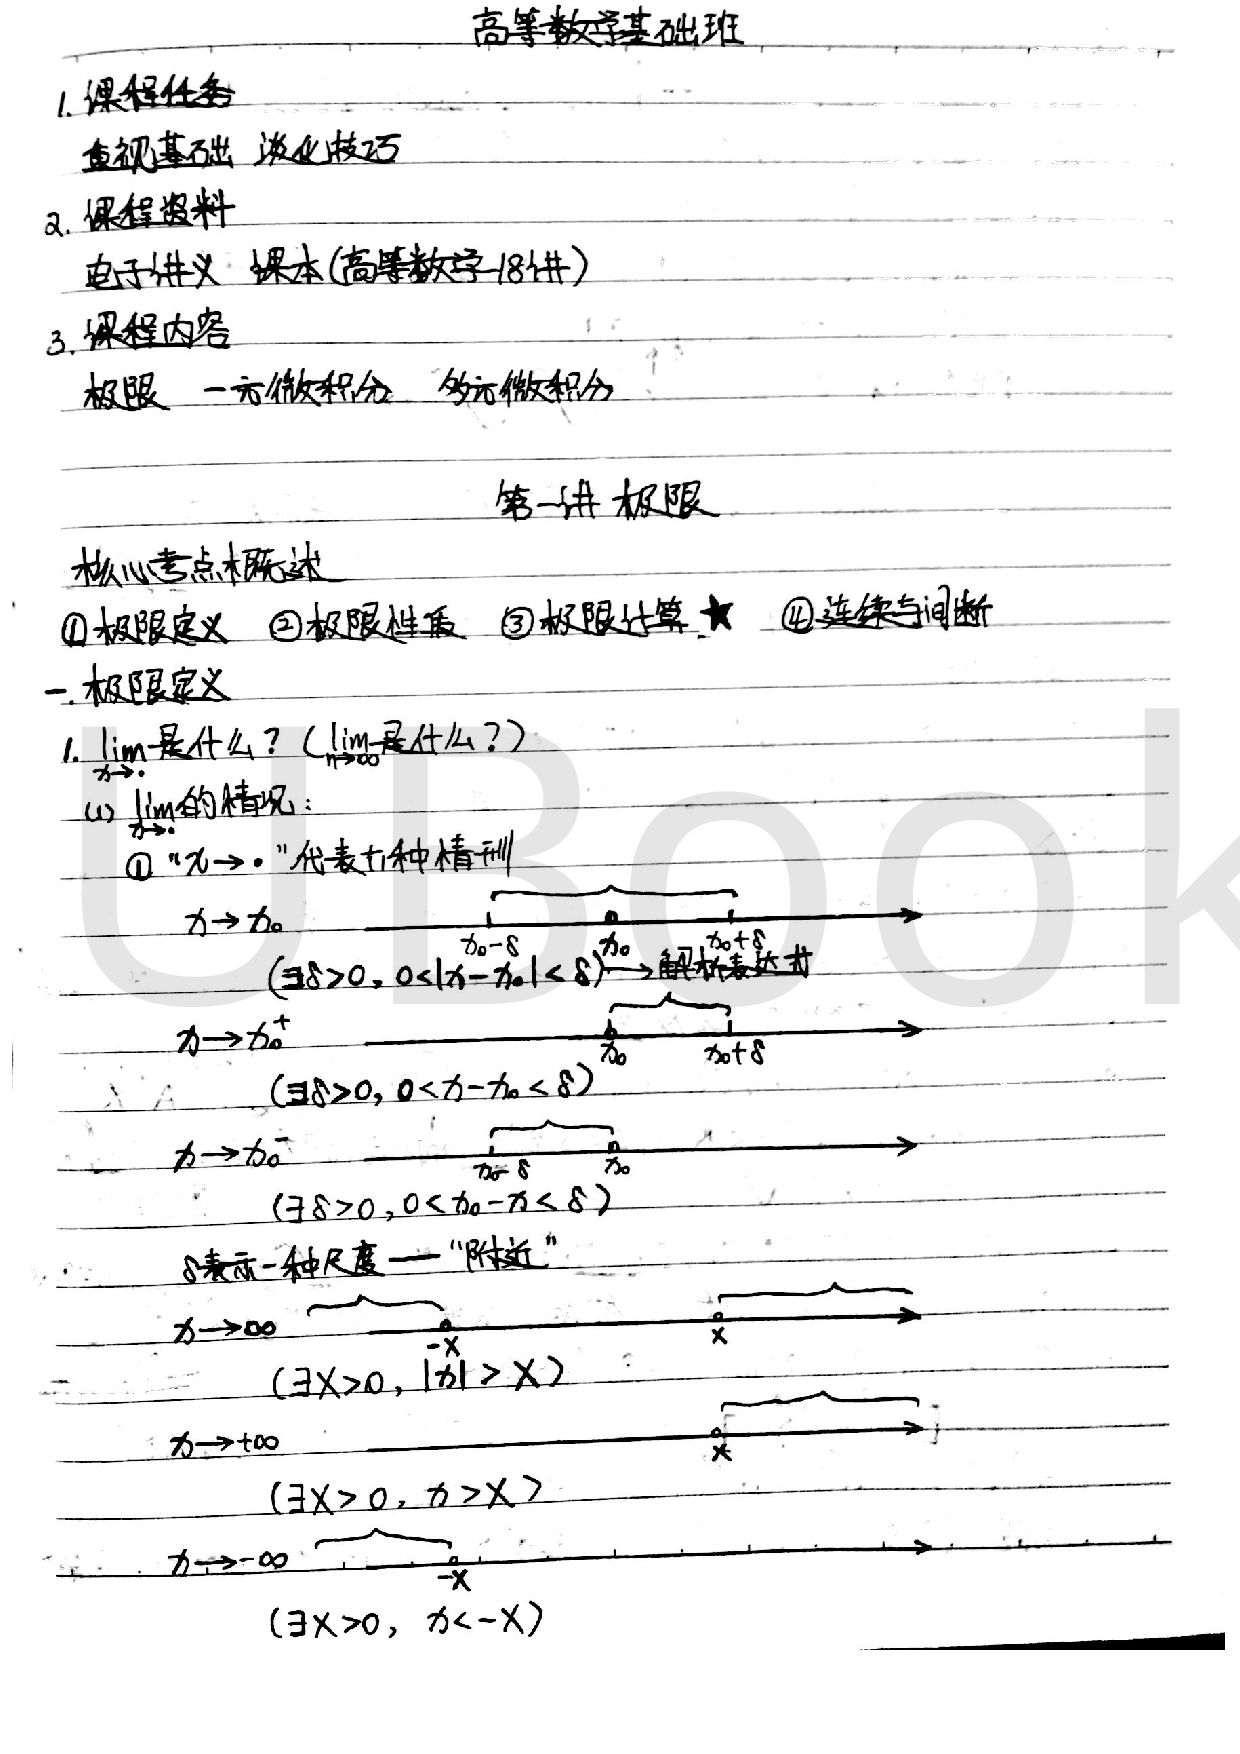 高等数学基础班
1. 课程任务
重视基础 淡化技巧
2. 课程资料
电子讲义 课本(高等数学18讲)
3. 课程内容
极限 一元微积分 多元微积分
第一讲 极限
核心考点概述
①极限定义 ②极限性质 ③极限计算 ★ ④连续与间断
一. 极限定义
1. lim x→· 是什么? (lim n→∞ 是什么?)
(1) lim x→· 的情况:
① "x→·"代表六种情形
x→x₀ x₀-δ x₀ x₀+δ
(∃δ>0, 0<|x-x₀|<δ)→解析表达式
x→x₀⁺ x₀ x₀+δ
(∃δ>0, 0<x-x₀<δ)
x→x₀⁻ x₀-δ x₀
(∃δ>0, 0<x₀-x<δ)
δ表示一种尺度——"附近"
x→∞ -X X
(∃X>0, |x|>X)
x→+∞ X
(∃X>0, x>X)
x→-∞ -X
(∃X>0, x<-X)
UBook